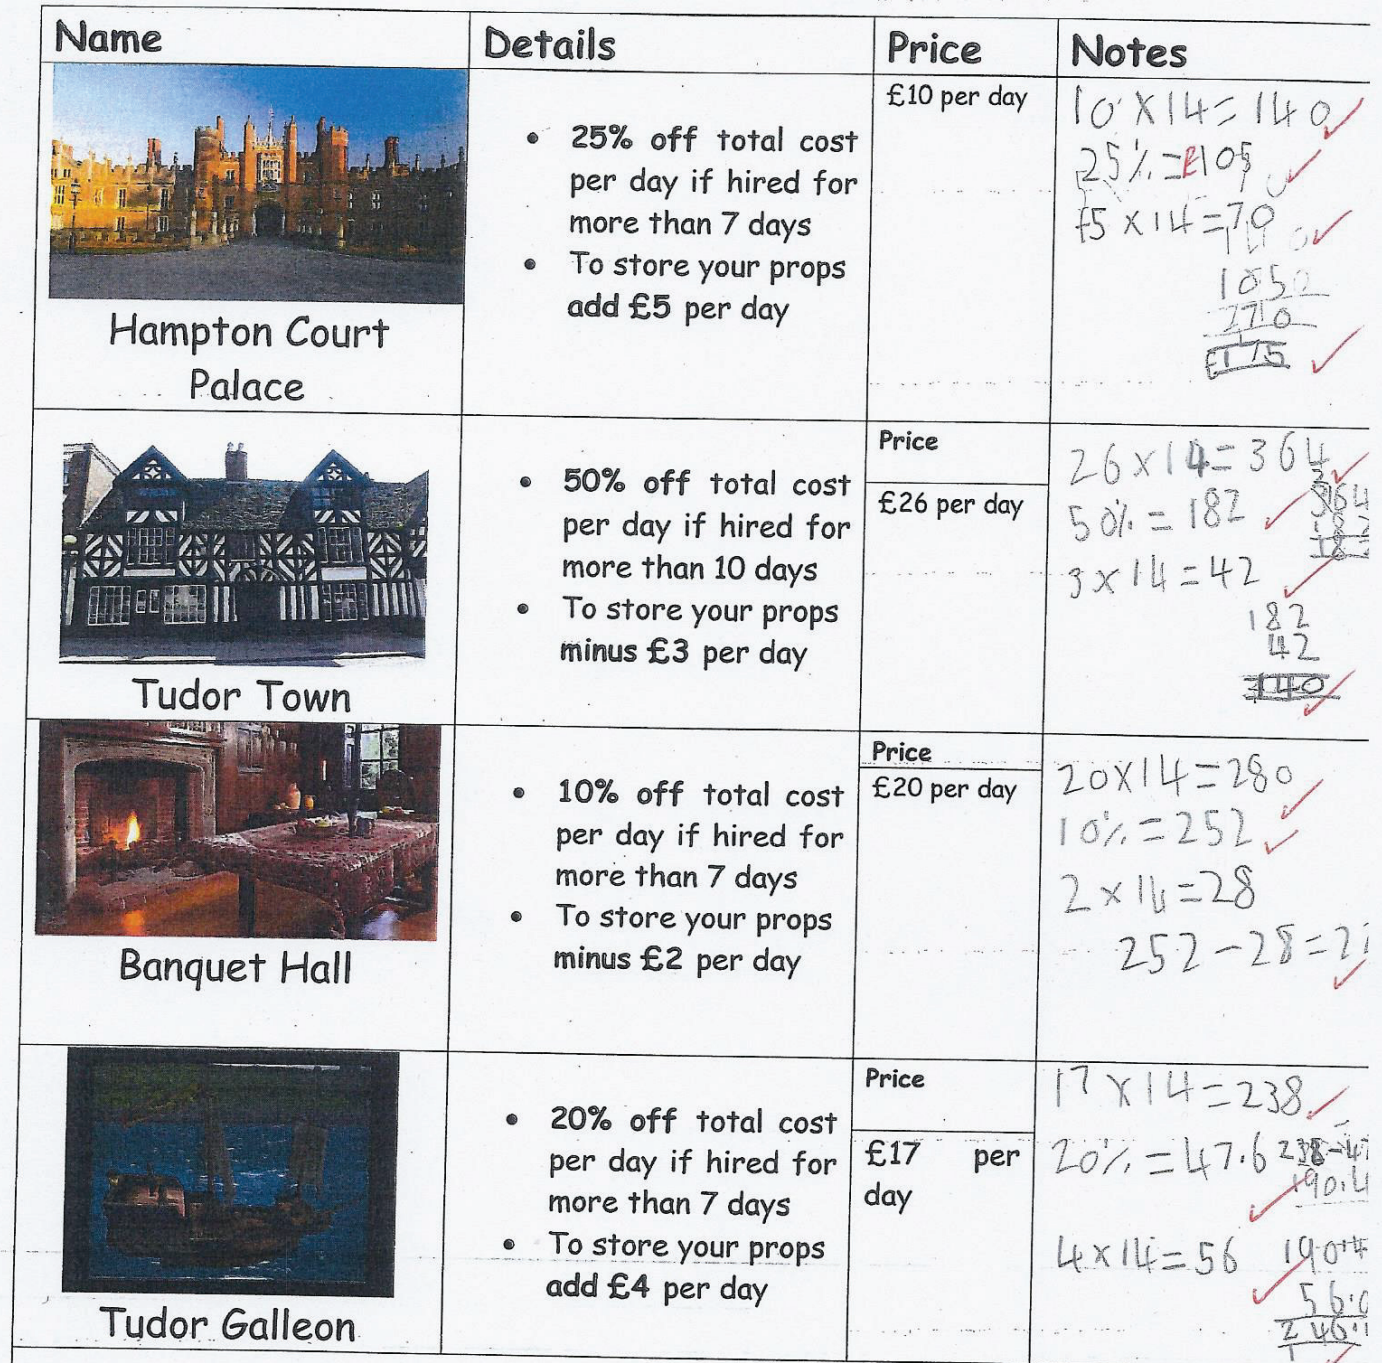 Name Details Price Notes
Hampton Court
Palace
• 25% off total cost
per day if hired for
more than 7 days
• To store your props
add £5 per day
£10 per day
10 x 14 = 140
25% = £105
£5 x 14 = 70
105
70
£175
Tudor Town
• 50% off total cost
per day if hired for
more than 10 days
• To store your props
minus £3 per day
Price
£26 per day
26 x 14 = 364
50% = 182
3 x 14 = 42
182
42
£140
Banquet Hall
• 10% off total cost
per day if hired for
more than 7 days
• To store your props
minus £2 per day
Price
£20 per day
20 x 14 = 280
10% = 252
2 x 14 = 28
252 - 28 =
Tudor Galleon
• 20% off total cost
per day if hired for
more than 7 days
• To store your props
add £4 per day
Price
£17 per
day
17 x 14 = 238
20% = 47.6
190.4
4 x 14 = 56
190.4
56.0